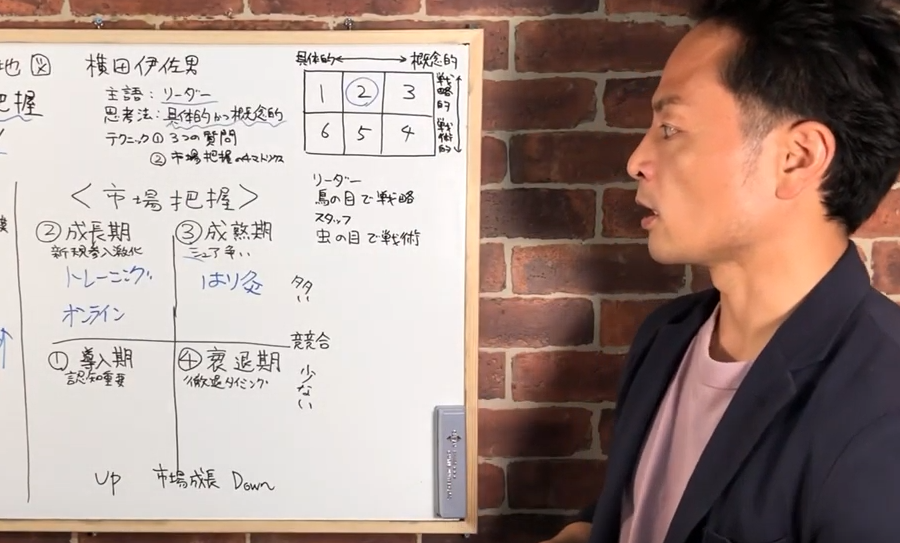 地図 横田伊佐男
把握
主語：リーダー
思考法：具体的かつ概念的
テクニック① 3つの質問
② 市場把握の4マトリクス
具体的 概念的
1 2 3
戦略的
6 5 4
戦術的
リーダー
鳥の目で戦略
スタッフ
虫の目で戦術
<市場把握>
②成長期
新規参入激化
トレーニング
オンライン
③成熟期
シェア争い
はり灸
多い
競合
少ない
①導入期
認知重要
④衰退期
撤退タイミング
Up 市場成長 Down